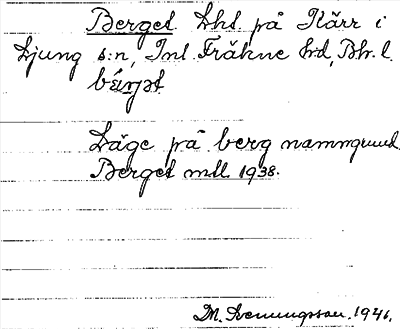 Berget Lht på Kärr i
Ljung s:n, Inl. Fräkne hd, Bh. l.
bǽrjət
Läge på berg namngrund.
Berget mtl 1938.
M. Henningsson. 1946.